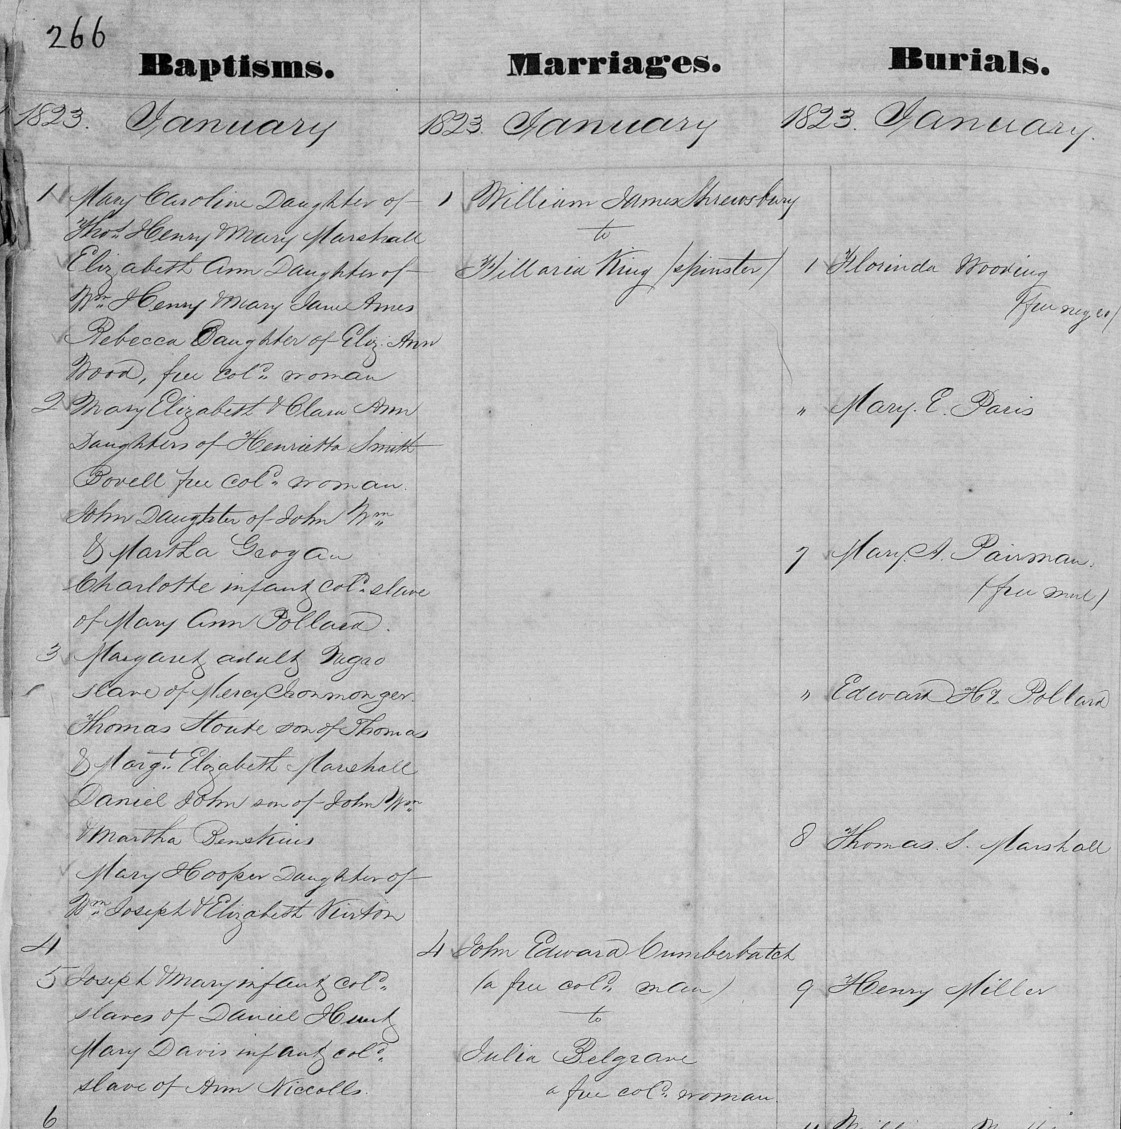 266
Baptisms.
1823. January
1 Mary Caroline Daughter of
Thos. Henry & Mary Marshall
Elizabeth Ann Daughter of
Wm. Henry & Mary Jane Ames
Rebecca Daughter of Eliz. Ann
Wood, free cold. woman
2 Mary Elizabeth & Clara Ann
Daughters of Henrietta Smith
Bovell free cold. woman.
John Daughter of John Wm.
& Martha Grogan
Charlotte infant cold. slave
of Mary Ann Pollard.
3 Margaret adult Negro
slave of Mercy Ironmonger.
Thomas Stoute son of Thomas
& Margt. Elizabeth Marshall
Daniel John son of John Wm.
& Martha Benskins
Mary Hooper Daughter of
Wm. Joseph & Elizabeth Kirton
4
5 Joseph & Mary infant cold.
slaves of Daniel Hunt
Mary Davis infant cold.
slave of Ann Niccolls.
6
Marriages.
1823. January
1 William James Shrewsbury
to
Hillaria King (spinster)
4 John Edward Cumberbatch
(a free cold. man)
to
Julia Belgrave
a free cold. woman
Burials.
1823. January.
1 Florinda Wooding
(free negro)
" Mary. E. Paris
7 Mary. A. Pairman.
(free mul)
" Edward Hy. Pollard
8 Thomas. S. Marshall
9 Henry Miller